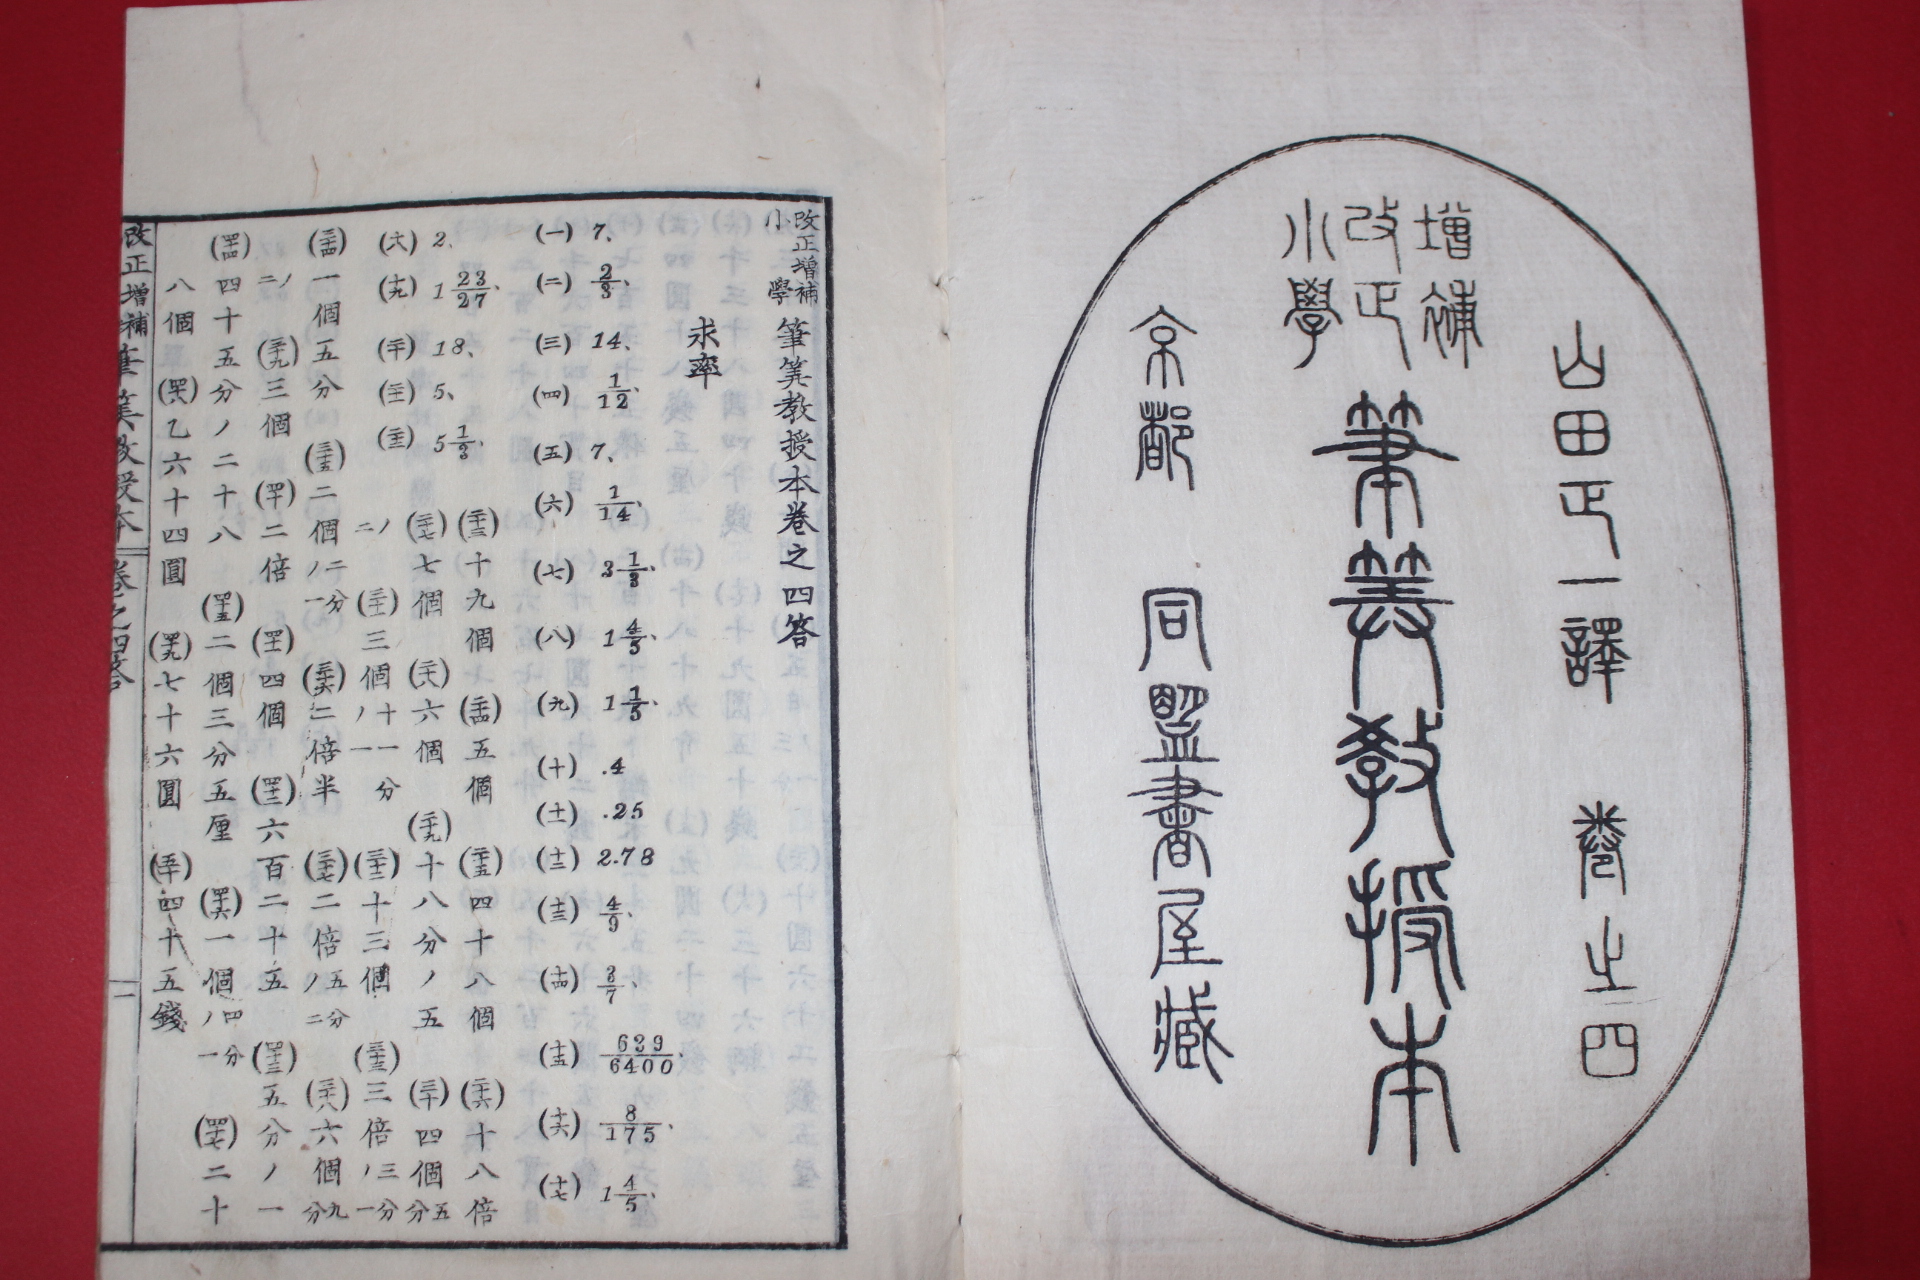 山田正一譯 卷之四
增補
改正
小學
筆筭教授本
京都 同盟書屋藏
改正增補小學 筆筭教授本卷之四答
求率
(一) 7、 (二) 2/3、 (三) 14、 (四) 1/12、 (五) 7、 (六) 1/14、 (七) 3 1/3、 (八) 1 4/5、 (九) 1 1/5、 (十) .4 (十一) .25 (十二) 2.78 (十三) 4/9、 (十四) 3/7、 (十五) 639/6400、 (十六) 8/175、 (十七) 1 4/5、
(十八) 2、 (十九) 1 23/27、 (二十) 18、 (二十一) 5、 (二十二) 5 1/3、
(二十三)十九個 (二十四)五個 (二十五)四十八個 (二十六)十八倍
(二十七)七個 (二十八)六個 (二十九)十八分ノ五 (三十)四個五分
ノ二 (三十一)三個十一分ノ一 (三十二)十三個 (三十三)三倍三分ノ一
(三十四)一個五分 (三十五)二個二分ノ一 (三十六)二倍半 (三十七)二倍五分ノ二 (三十八)六個九分
ノ二 (三十九)三個 (四十)二倍 (四十一)四個 (四十二)六百二十五 (四十三)五分ノ一
(四十四)四十五分ノ二十八 (四十五)二個三分五厘 (四十六)一個四分ノ一 (四十七)二十
八個 (四十八)乙六十四圓 (四十九)七十六圓 (五十)四十五錢
改正增補筆筭教授本 卷之四答 一